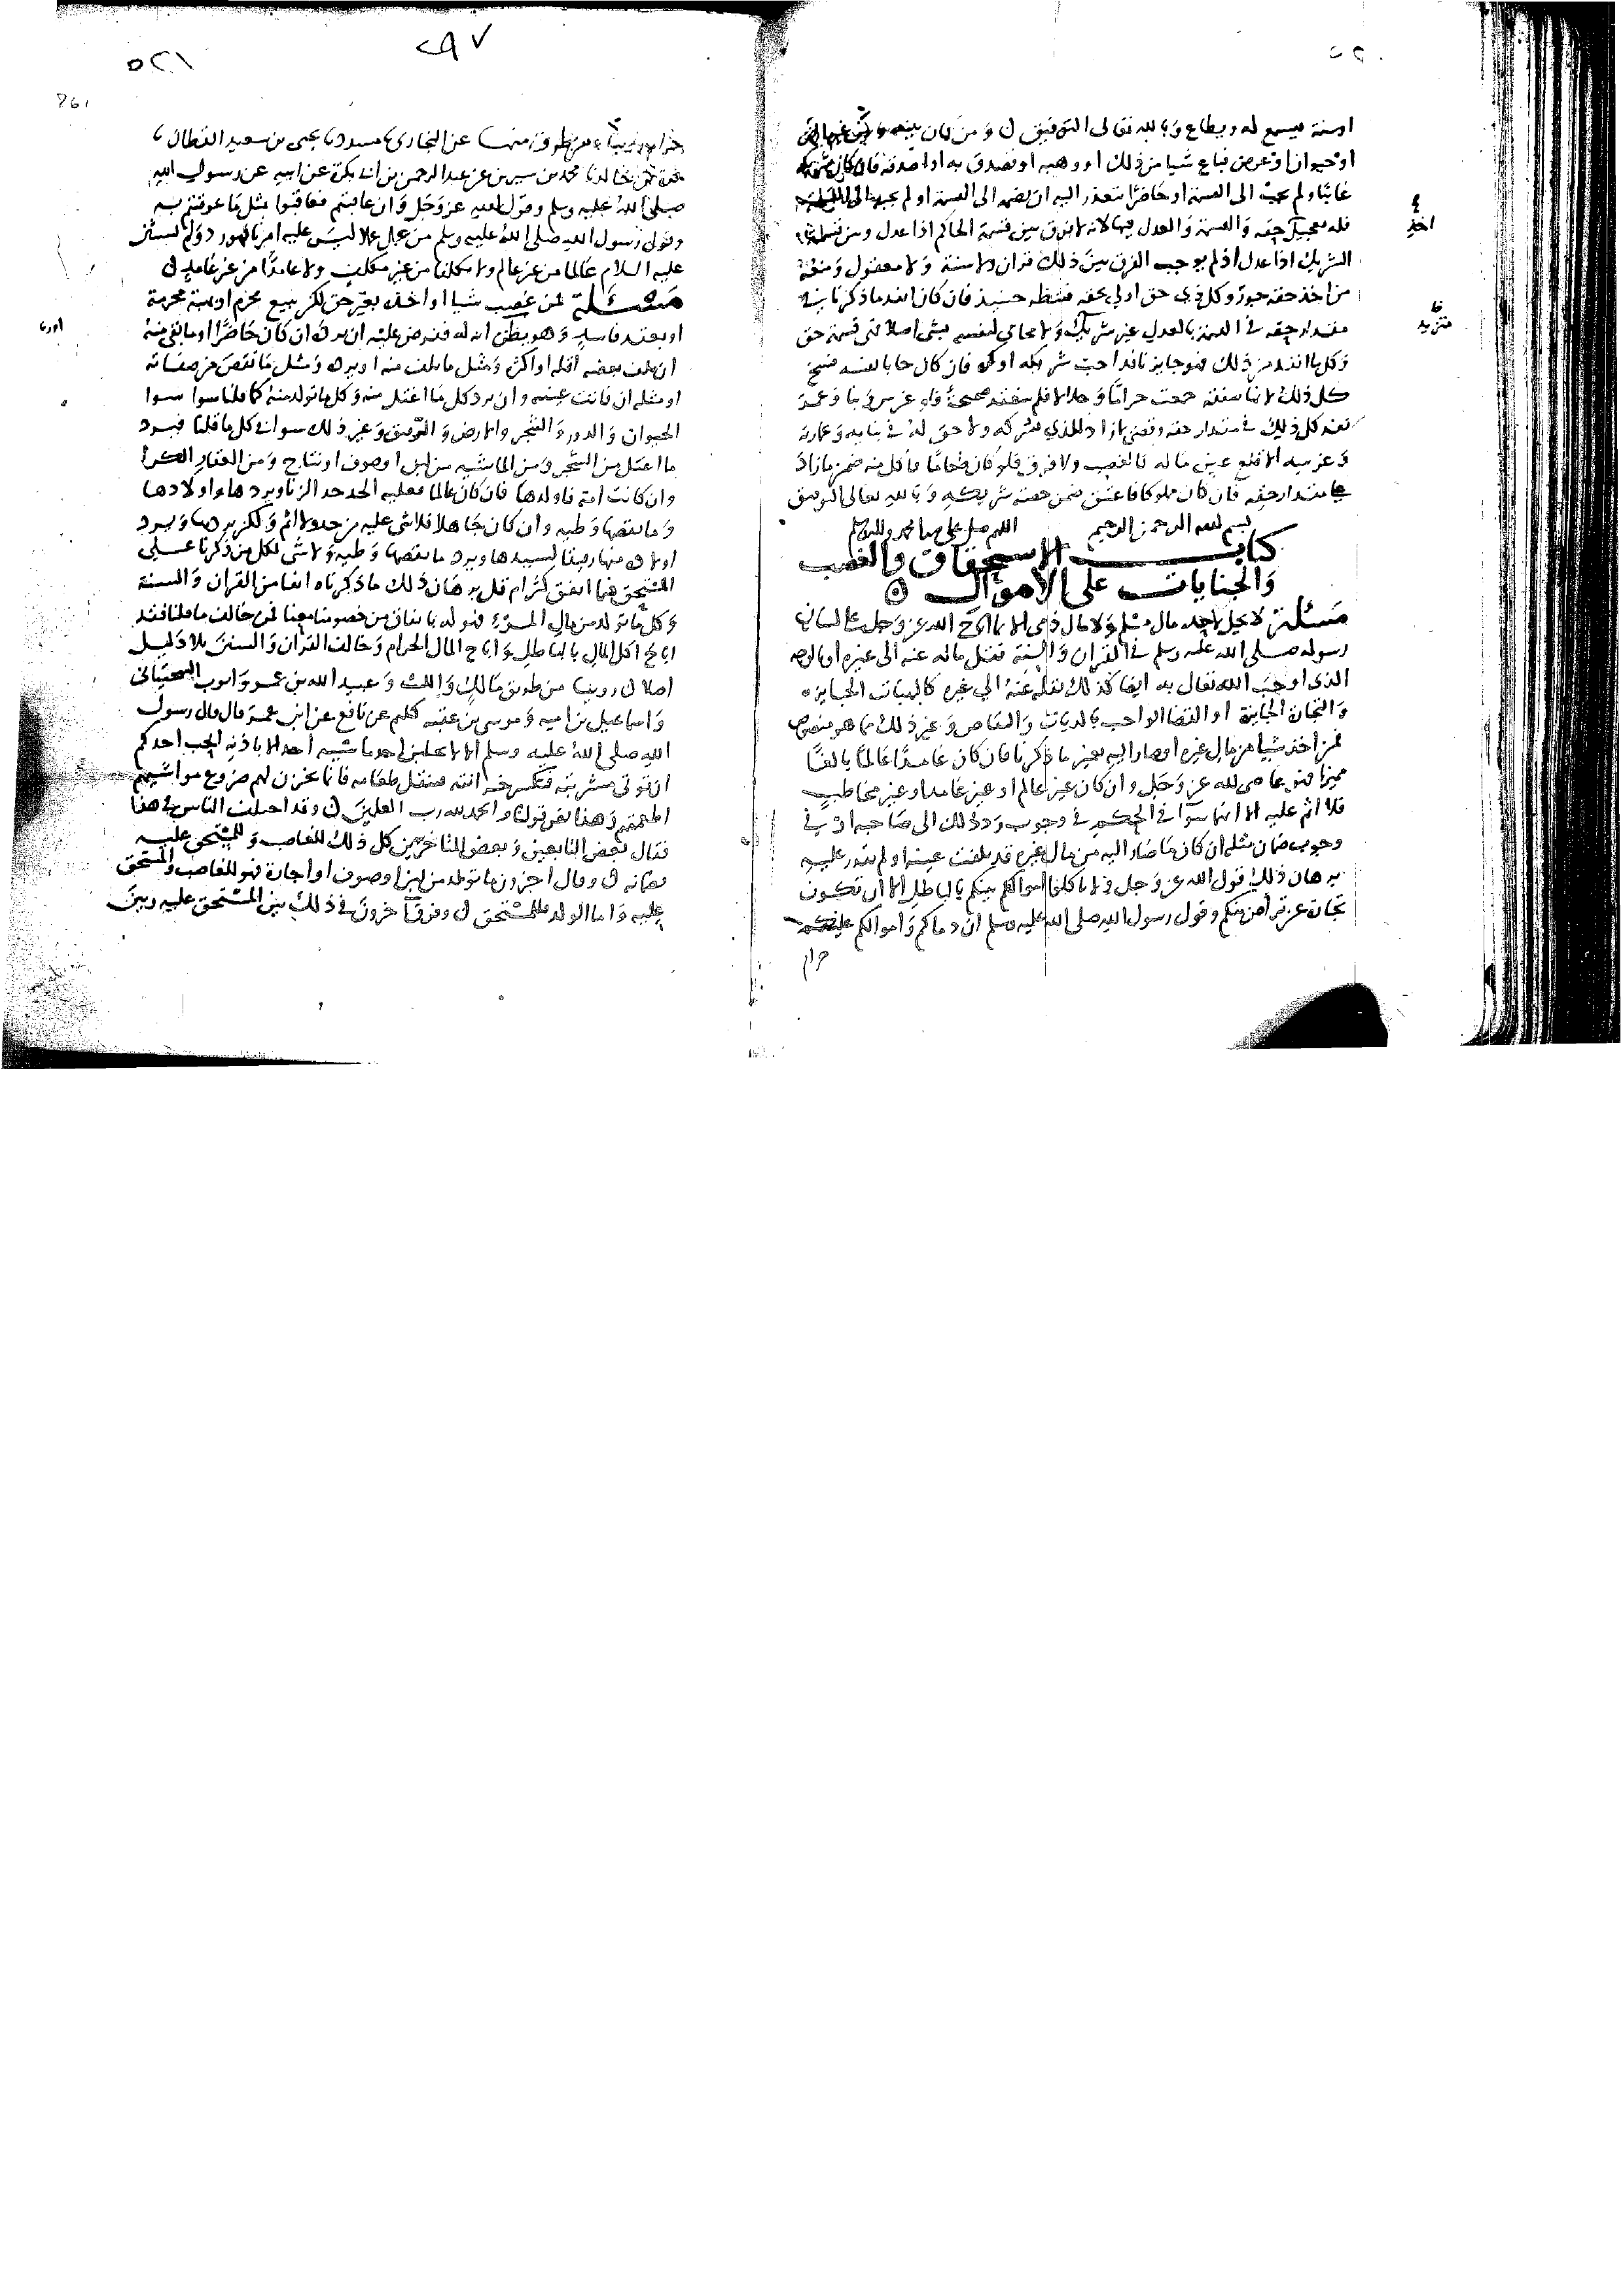 اوسنة فيسمع له ويطاع وبالله تعالى التوفيق ن ومن كان بينه وبين غيره ارض
او حيوان او عرض فباع شيا من ذلك او وهبه او تصدق به او اصدقه فان كان شريكه
غايبا ولم يجب الى القسمة او حاضرا يتعذر اليه ان يضمه الى القسمة او لم يجبه الى القسمة
فله تعجيل حقه والقسمة والعدل فيها لانه لا فرق بين قسمة الحاكم اذا عدل وبين قسمة
الشريك اذا عدل اذ لم يوجب الفرق بين ذلك قران ولا سنة ولا معقول ومنعه
من اخذ حقه جور وكل ذي حق اولى بحقه فننظر حينيذ فان كان انفذ ما ذكرنا في
مقدار حقه في القسمة بالعدل غير شريكه ولا محابي لنفسه بشي اصلا فهي قسمة حق
وكل ما انفذ من ذلك فهو جايز نافذ احب شريكه او كره فان كان حابا نفسه فسخ
كل ذلك لانها صفقة جمعت حراما وحلالا فلم تنعقد صحيحة فلو غرس وبنا وعمر
نفذ كل ذلك في مقدار حقه وقضي بما زاد للذي شركه ولا حق له في بنايه وعمارته
وغرسه الا قلع عين ماله كالغصب ولا فرق فلو كان طعاما فاكل منه ضمن ما زاد
على مقدار حقه فان كان مملوكا فاعتق ضمن حصة شريكه وبالله تعالى التوفيق
بسم الله الرحمن الرحيم اللهم صل على محمد واله وسلم
كتاب الاستحقاق والغصب
والجنايات على الاموال ن
مسئلة لا يحل لاحد مال مسلم ولا مال ذمي الا بما اباح الله عز وجل على لسان
رسوله صلى الله عليه وسلم في القران والسنة نقل ماله عنه الى غيره او بالوجه
الذي اوجب الله تعالى به ايضا كذلك نقله عنه الى غيره كالهبات الجايزة
والتجارة الجايزة او القضا الواجب بالديات والتقاص وغير ذلك مما هو منصوص
فمن اخذ شيا من مال غيره او صار اليه بغير ما ذكرنا فان كان عامدا عالما بالغا
مميزا فهو عاص لله عز وجل وان كان غير عالم او غير عامد او غير مخاطب
فلا اثم عليه الا انهما سوا في الحكم في وجوب رد ذلك الى صاحبه او في
وجوب ضمان مثله ان كان ما صار اليه من مال غيره قد تلفت عينه او لم يقدر عليه
برهان ذلك قول الله عز وجل ولا تاكلوا اموالكم بينكم بالباطل الا ان تكون
تجارة عن تراض منكم وقول رسول الله صلى الله عليه وسلم ان دماكم واموالكم عليكم
حرام
حرام روينا من طرق منها عن البخاري نا مسدد نا يحيى بن سعيد القطان نا
قرة بن خالد نا محمد بن سيرين عن عبد الرحمن بن ابي بكرة عن ابيه عن رسول الله
صلى الله عليه وسلم وقول الله عز وجل وان عاقبتم فعاقبوا بمثل ما عوقبتم به
وقول رسول الله صلى الله عليه وسلم من عمل عملا ليس عليه امرنا فهو رد ولم يستثن
عليه السلام عالما من غير عالم ولا مكلفا من غير مكلف ولا عامدا من غير عامد ن
مسئلة فمن غصب شيا او اخذه بغير حق لكن ببيع محرم او هبة محرمة
او بعقد فاسد وهو يظن انه له ففرض عليه ان يرده ان كان حاضرا او ما بقي منه
ان تلف بعضه اقله او اكثره ومثل ما تلف منه او يرده ومثل ما نقص من صفاته
او مثله ان فاتت عينه وان يرد كل ما اغتل منه وكل ما تولد منه كما قلنا سوا سوا
الحيوان والدور والشجر والارض والرقيق وغير ذلك سوا في كل ما قلنا فيرد
ما اغتل من الشجر ومن الماشية من لبن او صوف او نتاج ومن العقار الكرا
وان كانت امة فاولدها فان كان عالما فعليه الحد حد الزنا ويردها واولادها
وما نقصها وطيه وان كان جاهلا فلا شي عليه من حد ولا اثم ولكن يردها ويرد
اولاده منها رقيقا لسيدها ويرد ما نقصها وطيه ولا شي لكل من ذكرنا على
المستحق فيما انفق كثر ام قل برهان ذلك ما ذكرناه انفا من القران والسنة
وكل ما تولد من مال المرء فهو له باتفاق من خصومنا معنا فمن خالف ما قلنا فقد
اباح اكل المال بالباطل واباح المال الحرام وخالف القران والسنن بلا دليل
اصلا ن روينا من طريق مالك والليث وعبيد الله بن عمر وايوب السختياني
واسماعيل بن امية وموسى بن عقبة كلهم عن نافع عن ابن عمر قال قال رسول
الله صلى الله عليه وسلم الا لا تحلبن احد ماشية احد الا باذنه ايحب احدكم
ان توتى مشربته فتكسر خزانته فينتقل طعامه فانما تخزن لهم ضروع مواشيهم
اطعمتهم وهذا نص قولنا والحمد لله رب العلمين ن وقد اختلف الناس في هذا
فقال بعض التابعين وبعض المتاخرين كل ذلك للغاصب وللمستحق عليه
بضمانه ن وقال اخرون ما تولد من لبن او صوف او اجارة فهو للغاصب والمستحق
عليه واما الولد فللمستحق ن وفرق اخرون في ذلك بين المستحق عليه وبين